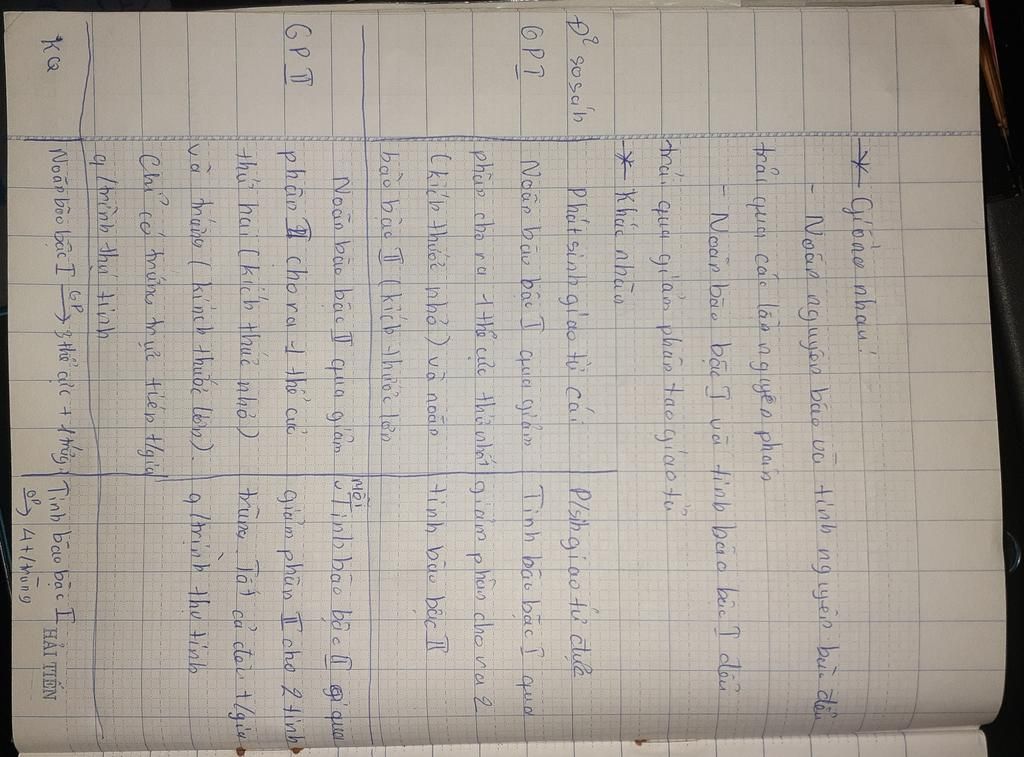 * Giống nhau:
- Noãn nguyên bào và tinh nguyên bào đều
trải qua các lần nguyên phân
- Noãn bào bậc I và tinh bào bậc I đều
trải qua giảm phân tạo giao tử
* Khác nhau
Đ² so sánh
Phát sinh giao tử cái
P/sinh giao tử đực
GPI
Noãn bào bậc I qua giảm
phân cho ra 1 thể cực thứ nhất
(kích thước nhỏ) và noãn
bào bậc II (kích thước lớn
Tinh bào bậc I qua
giảm phân cho ra 2
tinh bào bậc II
GPII
Noãn bào bậc II qua giảm
phân II cho ra 1 thể cực
thứ hai (kích thước nhỏ)
và trứng (kính thước lớn).
Chỉ có trứng trực tiếp t/gia
q/trình thụ tinh
Mỗi
Tinh bào bậc II qua
giảm phân II cho 2 tinh
trùng. Tất cả đều t/gia
q/trình thụ tinh
KQ
Noãn bào bậc I GP→ 3 thể cực + 1 trứng
Tinh bào bậc I
GP→ 4 t/trùng
HẢI TIẾN